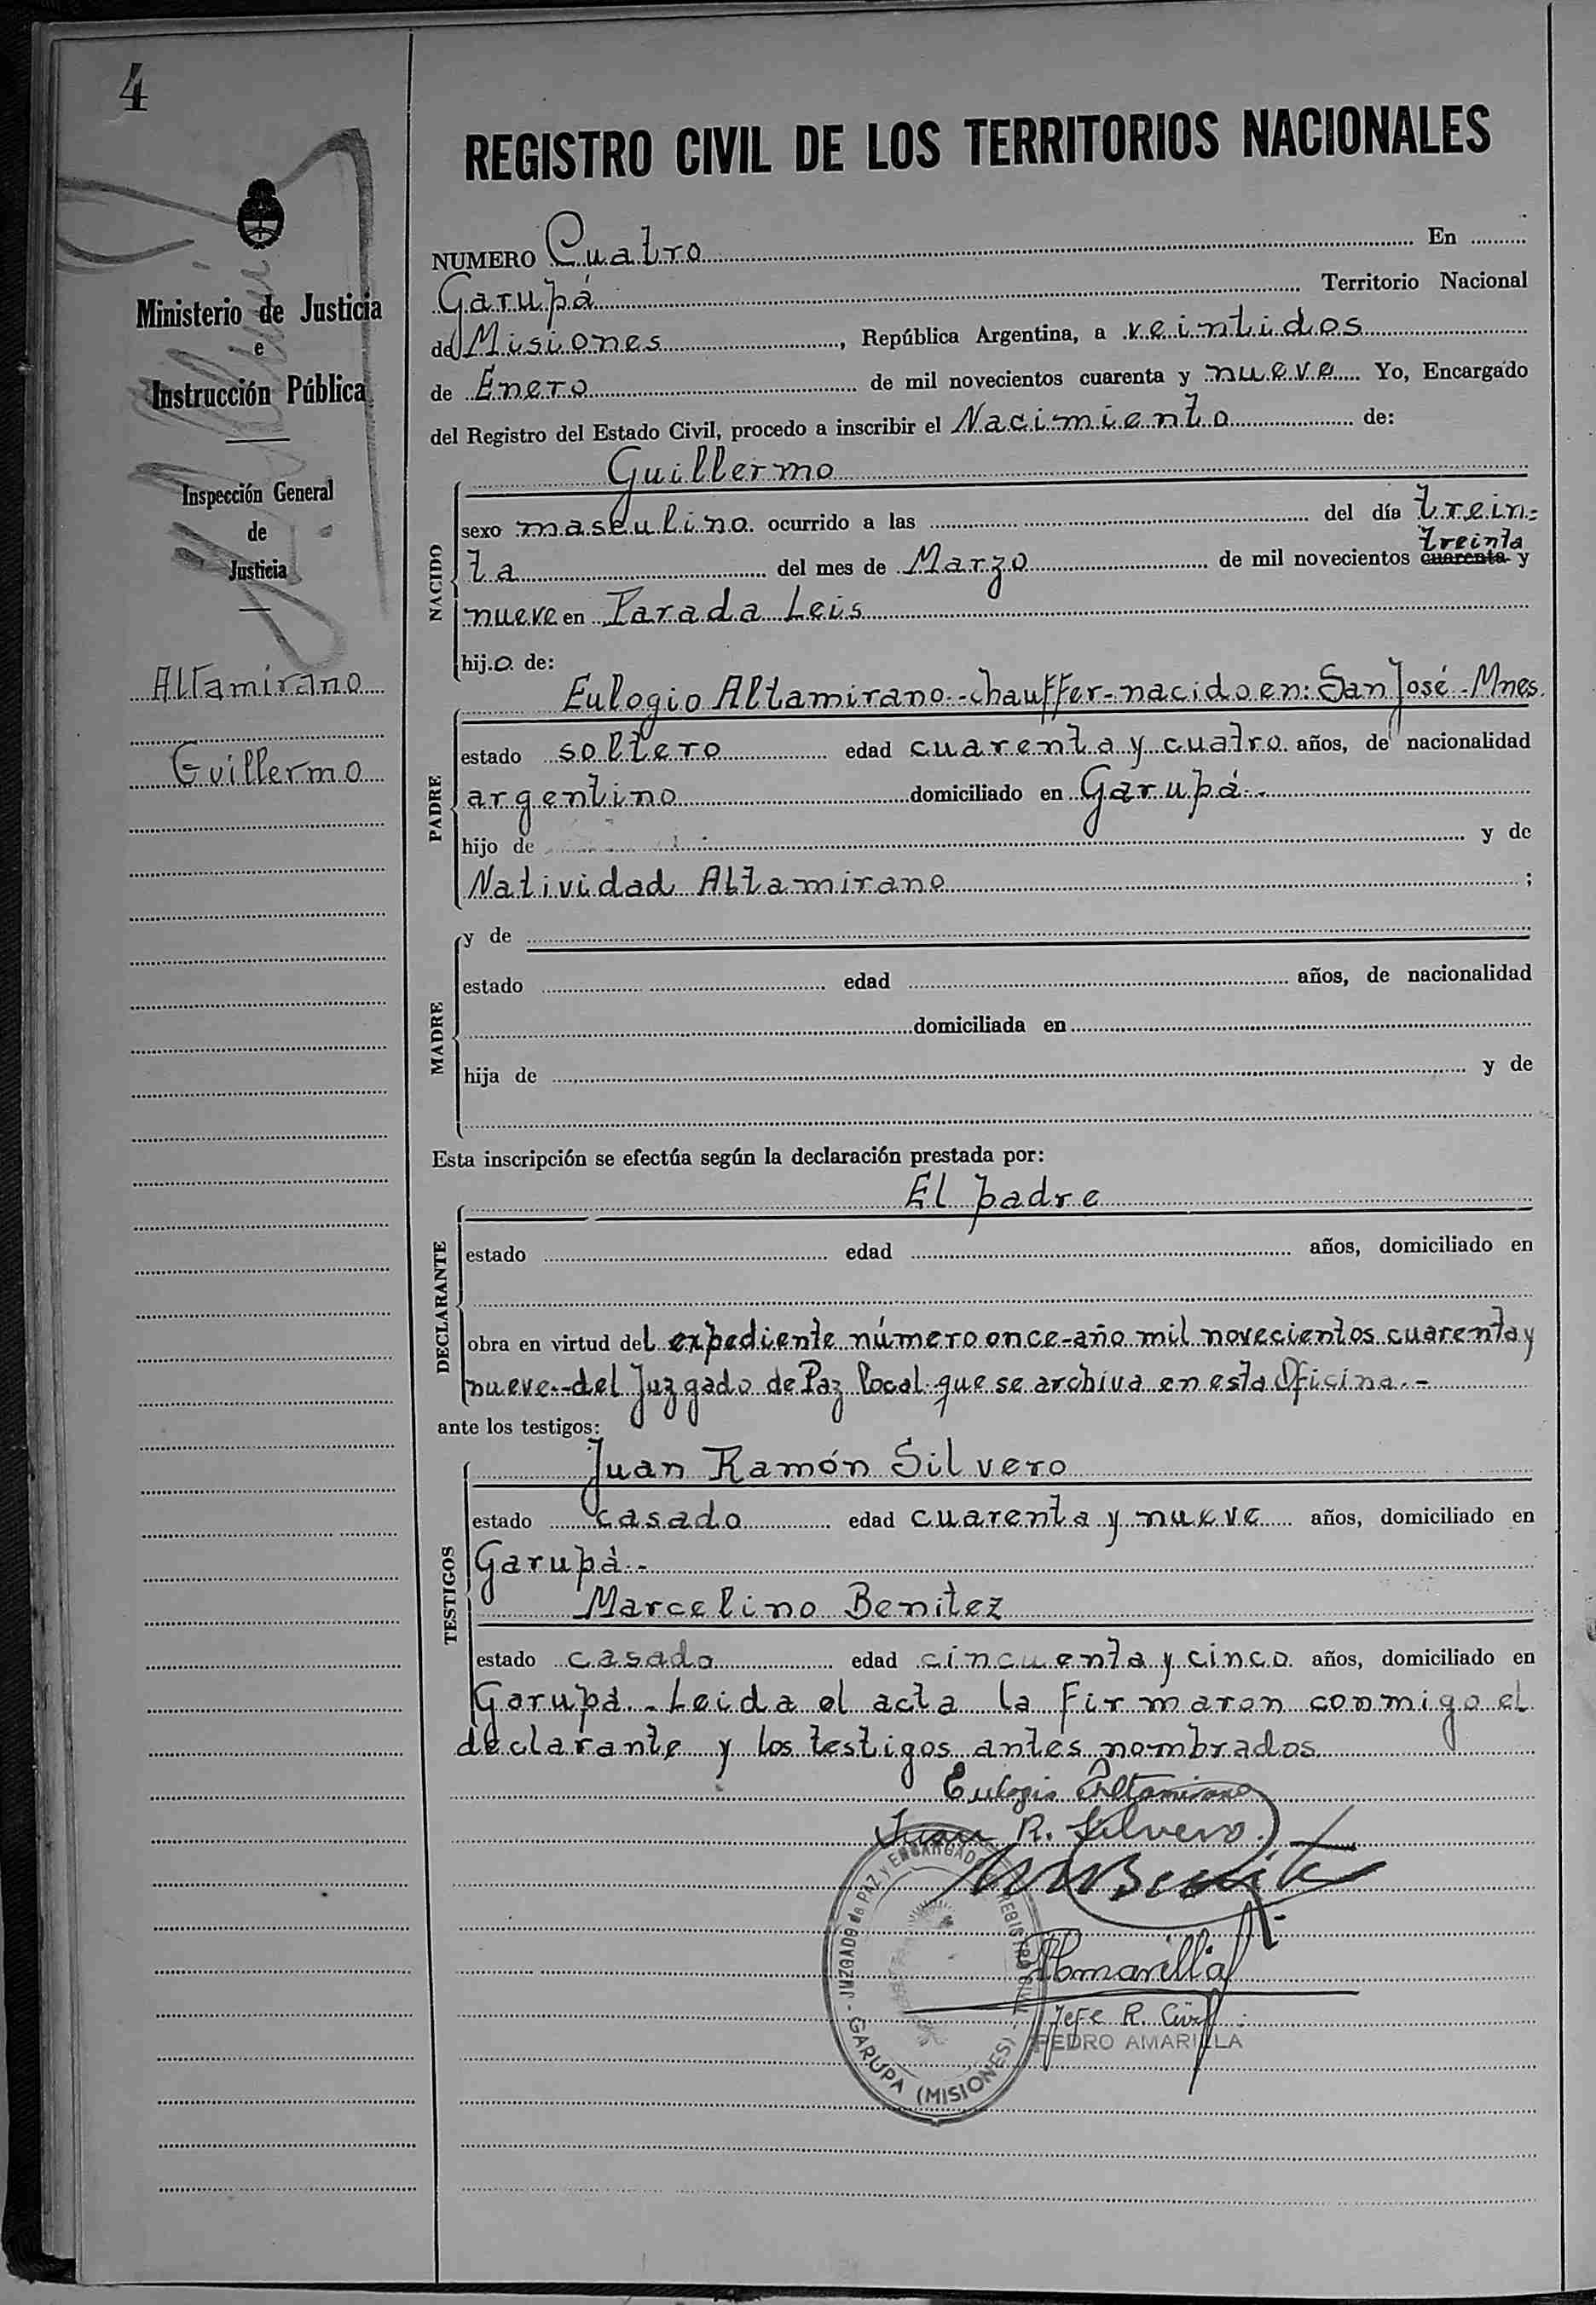 4
REGISTRO CIVIL DE LOS TERRITORIOS NACIONALES
Ministerio de Justicia
e
Instrucción Pública
Inspección General
de
Justicia
Altamirano
Guillermo
NUMERO Cuatro En
Garupá Territorio Nacional
de Misiones, República Argentina, a veintidos
de Enero de mil novecientos cuarenta y nueve Yo, Encargado
del Registro del Estado Civil, procedo a inscribir el Nacimiento de:
NACIDO
Guillermo
sexo masculino ocurrido a las del día trein=
treinta
ta del mes de Marzo de mil novecientos cuarenta y
nueve en Parada Leis
hijo de:
PADRE
Eulogio Altamirano.-chauffer-nacido en: San José.-Mnes.
estado soltero edad cuarenta y cuatro años, de nacionalidad
argentino domiciliado en Garupá.-
hijo de y de
Natividad Altamirano ;
MADRE
y de
estado edad años, de nacionalidad
domiciliada en
hija de y de
Esta inscripción se efectúa según la declaración prestada por:
DECLARANTE
El padre
estado edad años, domiciliado en
obra en virtud del expediente número once-año mil novecientos cuarenta y
nueve.-del Juzgado de Paz local que se archiva en esta Oficina.-
ante los testigos:
TESTIGOS
Juan Ramón Silvero
estado casado edad cuarenta y nueve años, domiciliado en
Garupá.-
Marcelino Benitez
estado casado edad cincuenta y cinco años, domiciliado en
Garupá.-Leida el acta la firmaron conmigo el
declarante y los testigos antes nombrados
Eulogio Altamirano
Juan R. Silvero
MBenitez
PAmarilla
Jefe R. Civil
PEDRO AMARILLA
JUZGADO de PAZ y ENCARGADO REGISTRO CIVIL
GARUPA (MISIONES)